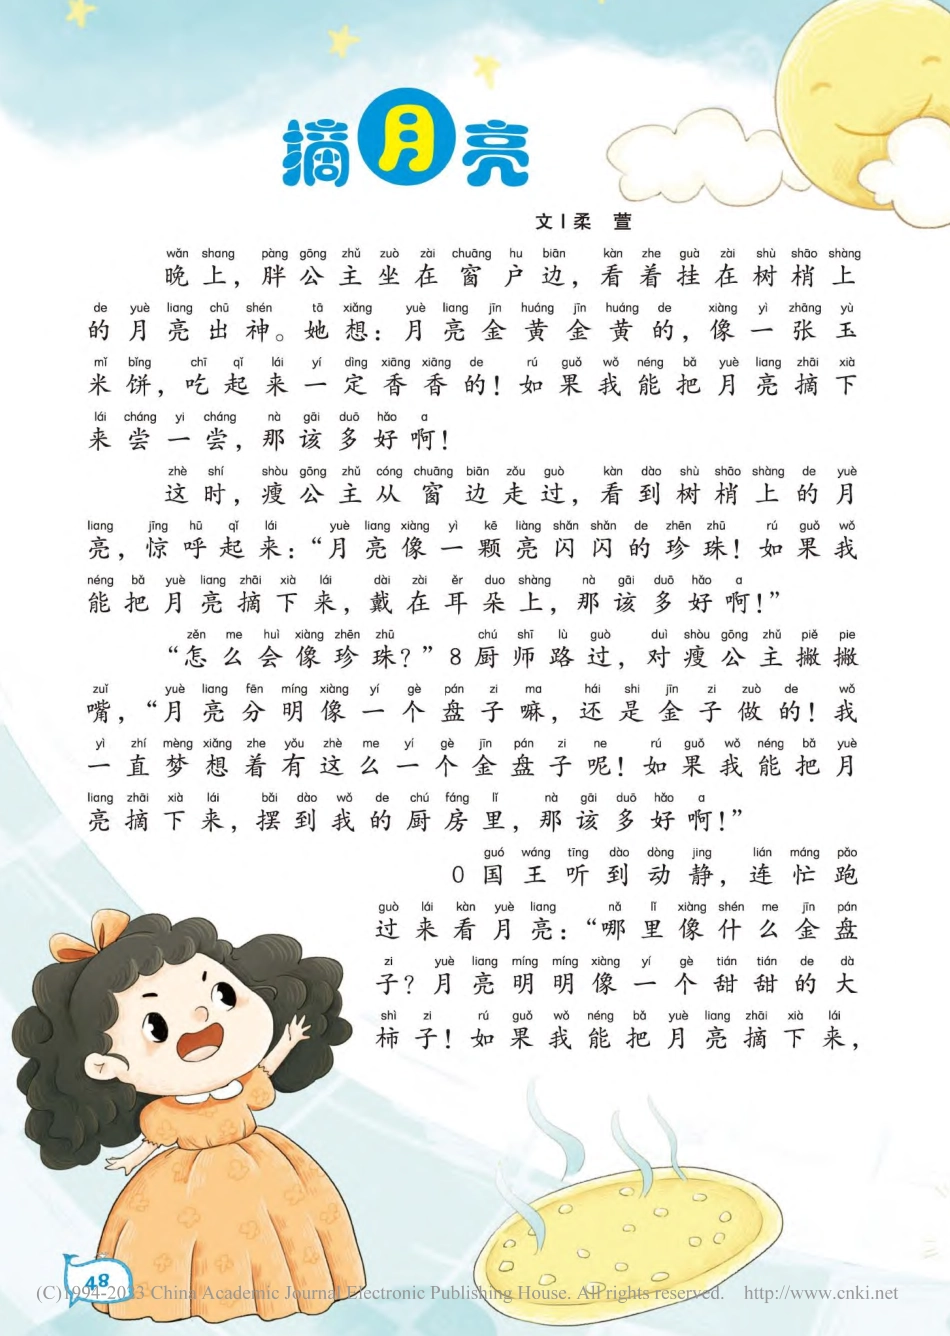 摘月亮
文|柔 萱
wǎn shang pàng gōng zhǔ zuò zài chuāng hu biān kàn zhe guà zài shù shāo shàng
晚上，胖公主坐在窗户边，看着挂在树梢上
de yuè liang chū shén tā xiǎng yuè liang jīn huáng jīn huáng de xiàng yì zhāng yù
的月亮出神。她想：月亮金黄金黄的，像一张玉
mǐ bǐng chī qǐ lái yí dìng xiāng xiāng de rú guǒ wǒ néng bǎ yuè liang zhāi xià
米饼，吃起来一定香香的！如果我能把月亮摘下
lái cháng yi cháng nà gāi duō hǎo a
来尝一尝，那该多好啊！
zhè shí shòu gōng zhǔ cóng chuāng biān zǒu guò kàn dào shù shāo shàng de yuè
这时，瘦公主从窗边走过，看到树梢上的月
liang jīng hū qǐ lái yuè liang xiàng yì kē liàng shǎn shǎn de zhēn zhū rú guǒ wǒ
亮，惊呼起来：“月亮像一颗亮闪闪的珍珠！如果我
néng bǎ yuè liang zhāi xià lái dài zài ěr duo shàng nà gāi duō hǎo a
能把月亮摘下来，戴在耳朵上，那该多好啊！”
zěn me huì xiàng zhēn zhū chú shī lù guò duì shòu gōng zhǔ piě pie
“怎么会像珍珠？”8厨师路过，对瘦公主撇撇
zuǐ yuè liang fēn míng xiàng yí gè pán zi ma hái shi jīn zi zuò de wǒ
嘴，“月亮分明像一个盘子嘛，还是金子做的！我
yì zhí mèng xiǎng zhe yǒu zhè me yí gè jīn pán zi ne rú guǒ wǒ néng bǎ yuè
一直梦想着有这么一个金盘子呢！如果我能把月
liang zhāi xià lái bǎi dào wǒ de chú fáng lǐ nà gāi duō hǎo a
亮摘下来，摆到我的厨房里，那该多好啊！”
guó wáng tīng dào dòng jing lián máng pǎo
0国王听到动静，连忙跑
guò lái kàn yuè liang nǎ lǐ xiàng shén me jīn pán
过来看月亮：“哪里像什么金盘
zi yuè liang míng míng xiàng yí gè tián tián de dà
子？月亮明明像一个甜甜的大
shì zi rú guǒ wǒ néng bǎ yuè liang zhāi xià lái
柿子！如果我能把月亮摘下来，
48
(C)1994-2023 China Academic Journal Electronic Publishing House. All rights reserved. http://www.cnki.net